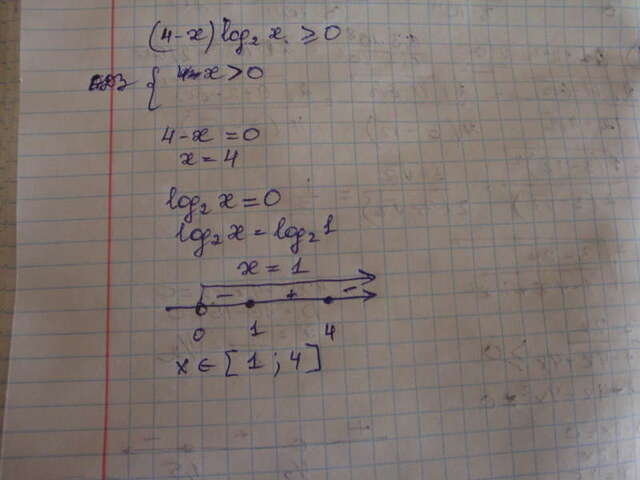 (4-x) log₂ x ≥ 0
ОДЗ { x > 0
4-x = 0
x = 4
log₂ x = 0
log₂ x = log₂ 1
x = 1
- + -
0 1 4
x ∈ [1; 4]